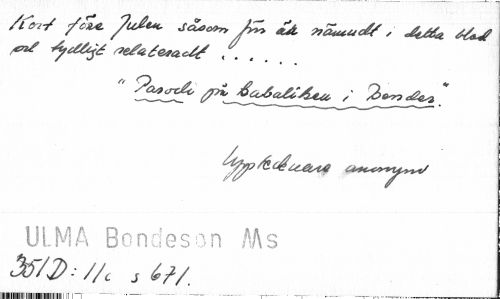 Kort före Julen såsom förr är nämndt i detta blad
och tydligt relateradt . . . . . .
"Parodi på Kabaliken i Bender".
Upptecknare anonym
ULMA Bondeson Ms
351D: 11c s 671.